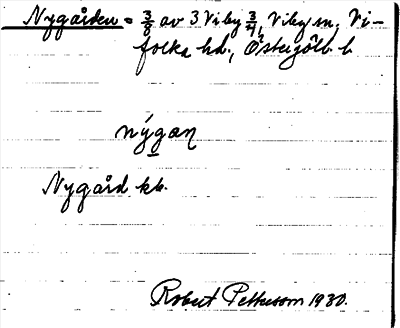 Nygården = 3/8 av 3 Viby 3/4, Viby sn, Vi-
folka hd., Östergötl. l.
nýgan
Nygård kb.
Robert Pettersson 1930.